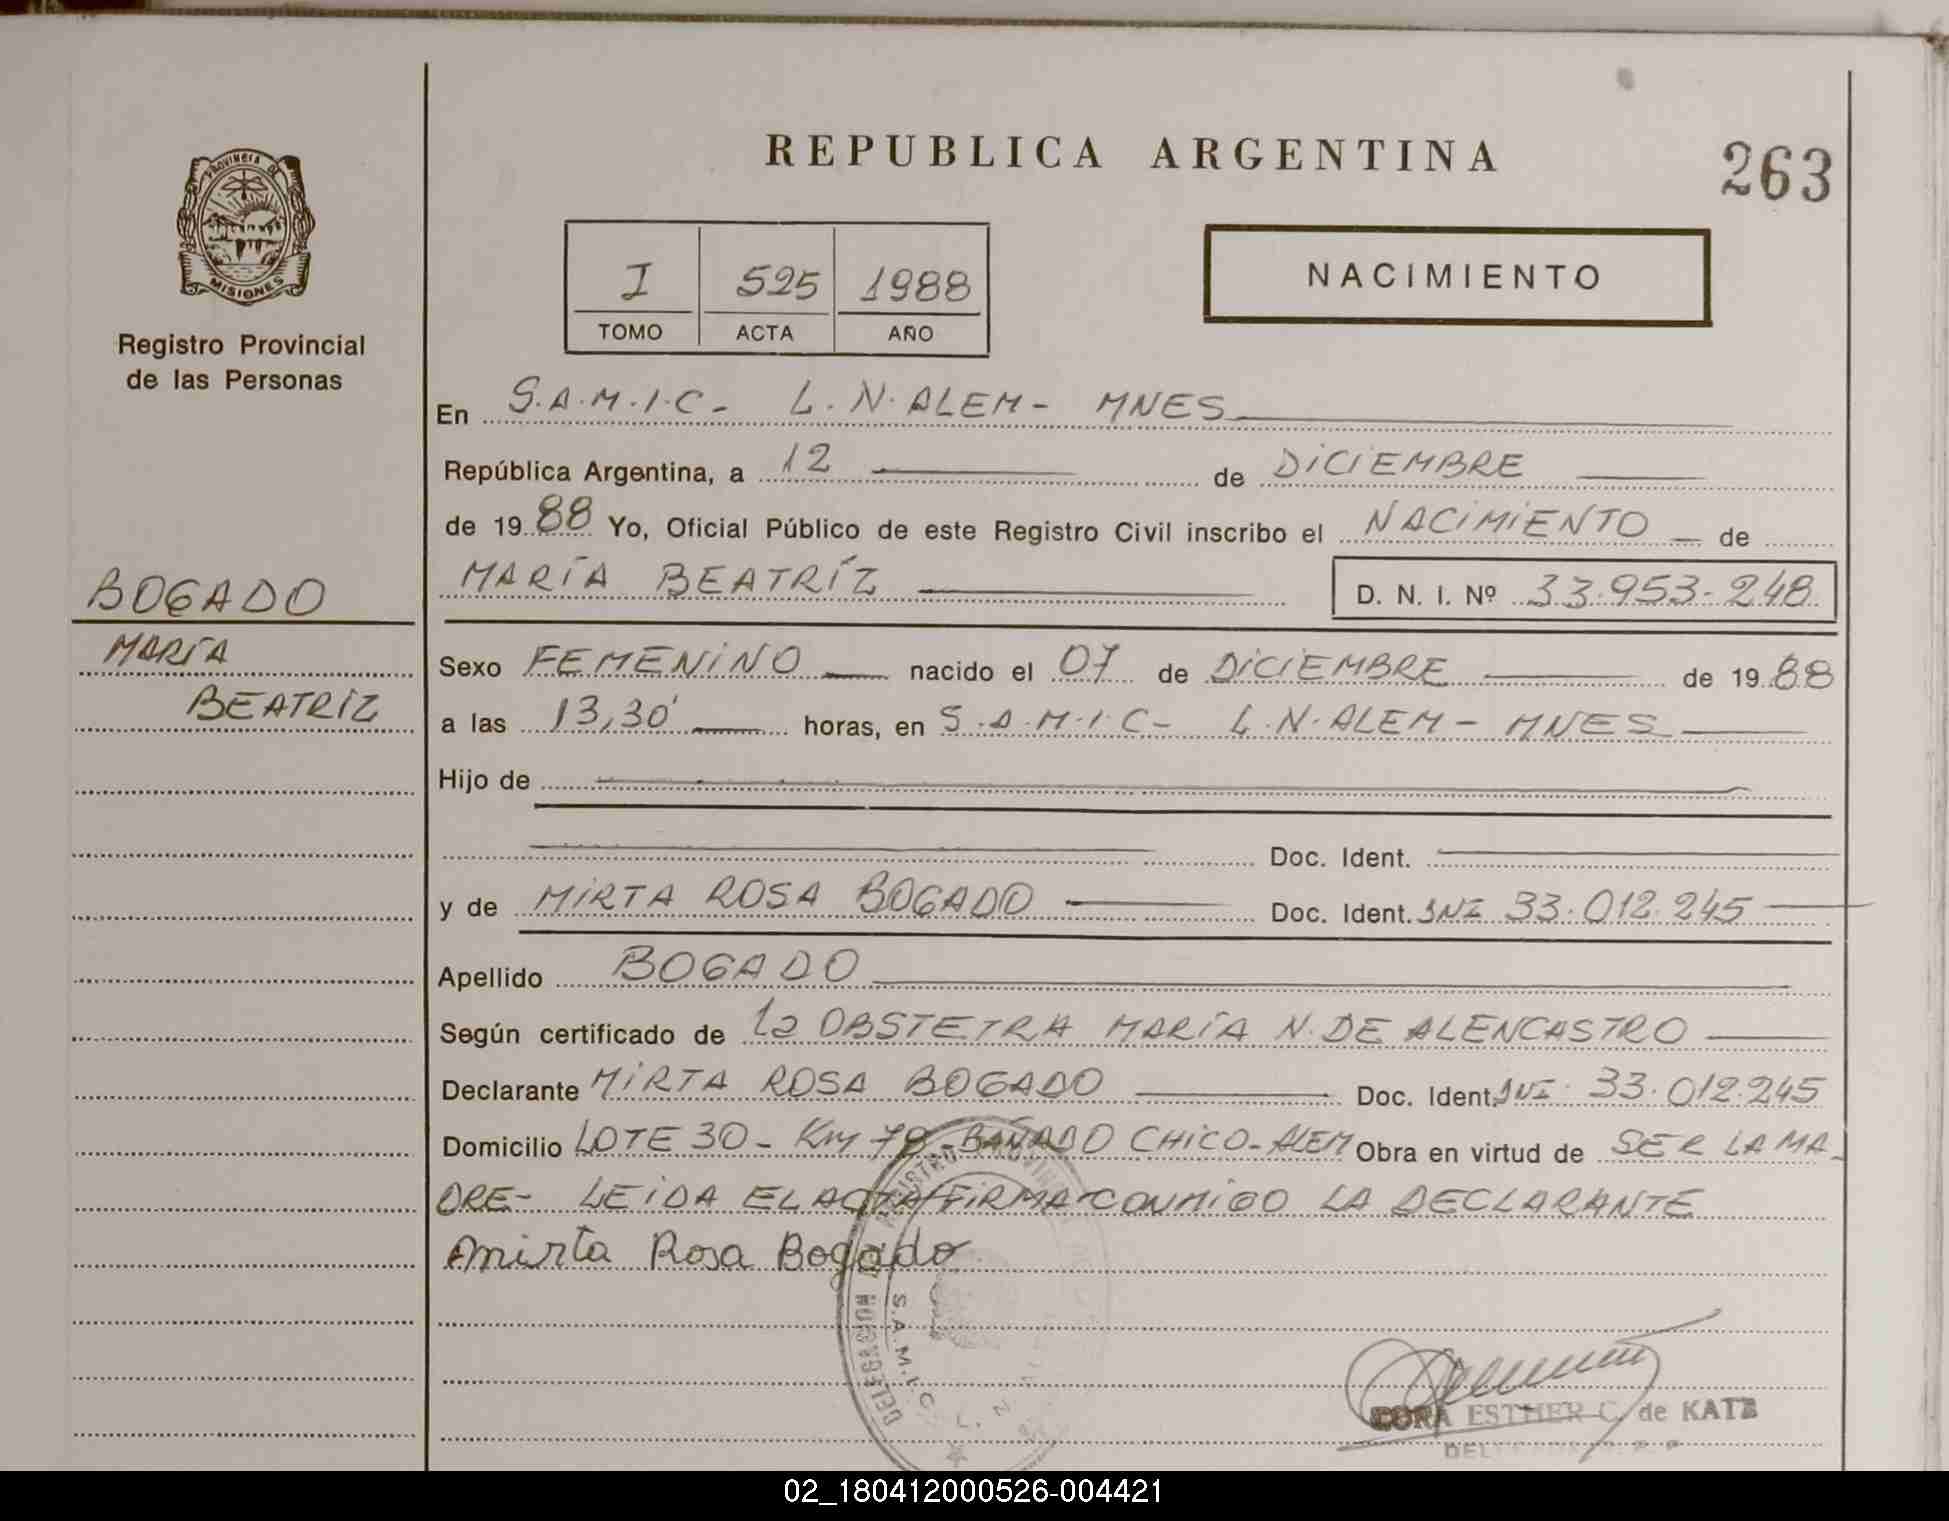 REPUBLICA ARGENTINA
263
PROVINCIA DE
MISIONES
Registro Provincial
de las Personas
I 525 1988
TOMO ACTA AÑO
NACIMIENTO
En S.A.M.I.C- L.N.ALEM- MNES
República Argentina, a 12 de DICIEMBRE
de 1988 Yo, Oficial Público de este Registro Civil inscribo el NACIMIENTO de
MARÍA BEATRÍZ D. N. I. Nº 33.953.248
BOGADO
MARÍA
BEATRÍZ
Sexo FEMENINO nacido el 07 de DICIEMBRE de 1988
a las 13,30' horas, en S.A.M.I.C- L.N.ALEM- MNES
Hijo de
Doc. Ident.
y de MIRTA ROSA BOGADO Doc. Ident. DNI 33.012.245
Apellido BOGADO
Según certificado de la OBSTETRA MARÍA N. DE ALENCASTRO
Declarante MIRTA ROSA BOGADO Doc. Ident. DNI 33.012.245
Domicilio LOTE 30- Km 78-BAÑADO CHICO-ALEM Obra en virtud de SER LA MA-
DRE- LEIDA EL ACTA FIRMA CONMIGO LA DECLARANTE
Mirta Rosa Bogado
DELEGACION DEL REGISTRO PROVINCIAL
S.A.M.I.C. L. N.
CORA ESTHER C. de KATZ
02_180412000526-004421